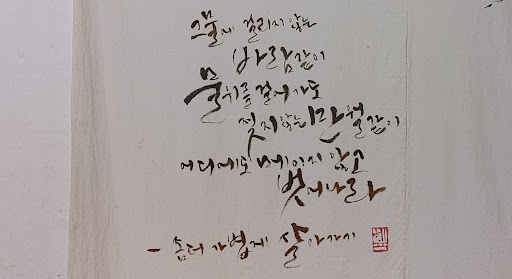 그물에 걸리지 않는
바람같이
물위를 걸어가도
젖지않는 달같이
어디에도 메이지 않고
벗어나라
- 좀더 가볍게 살아가기